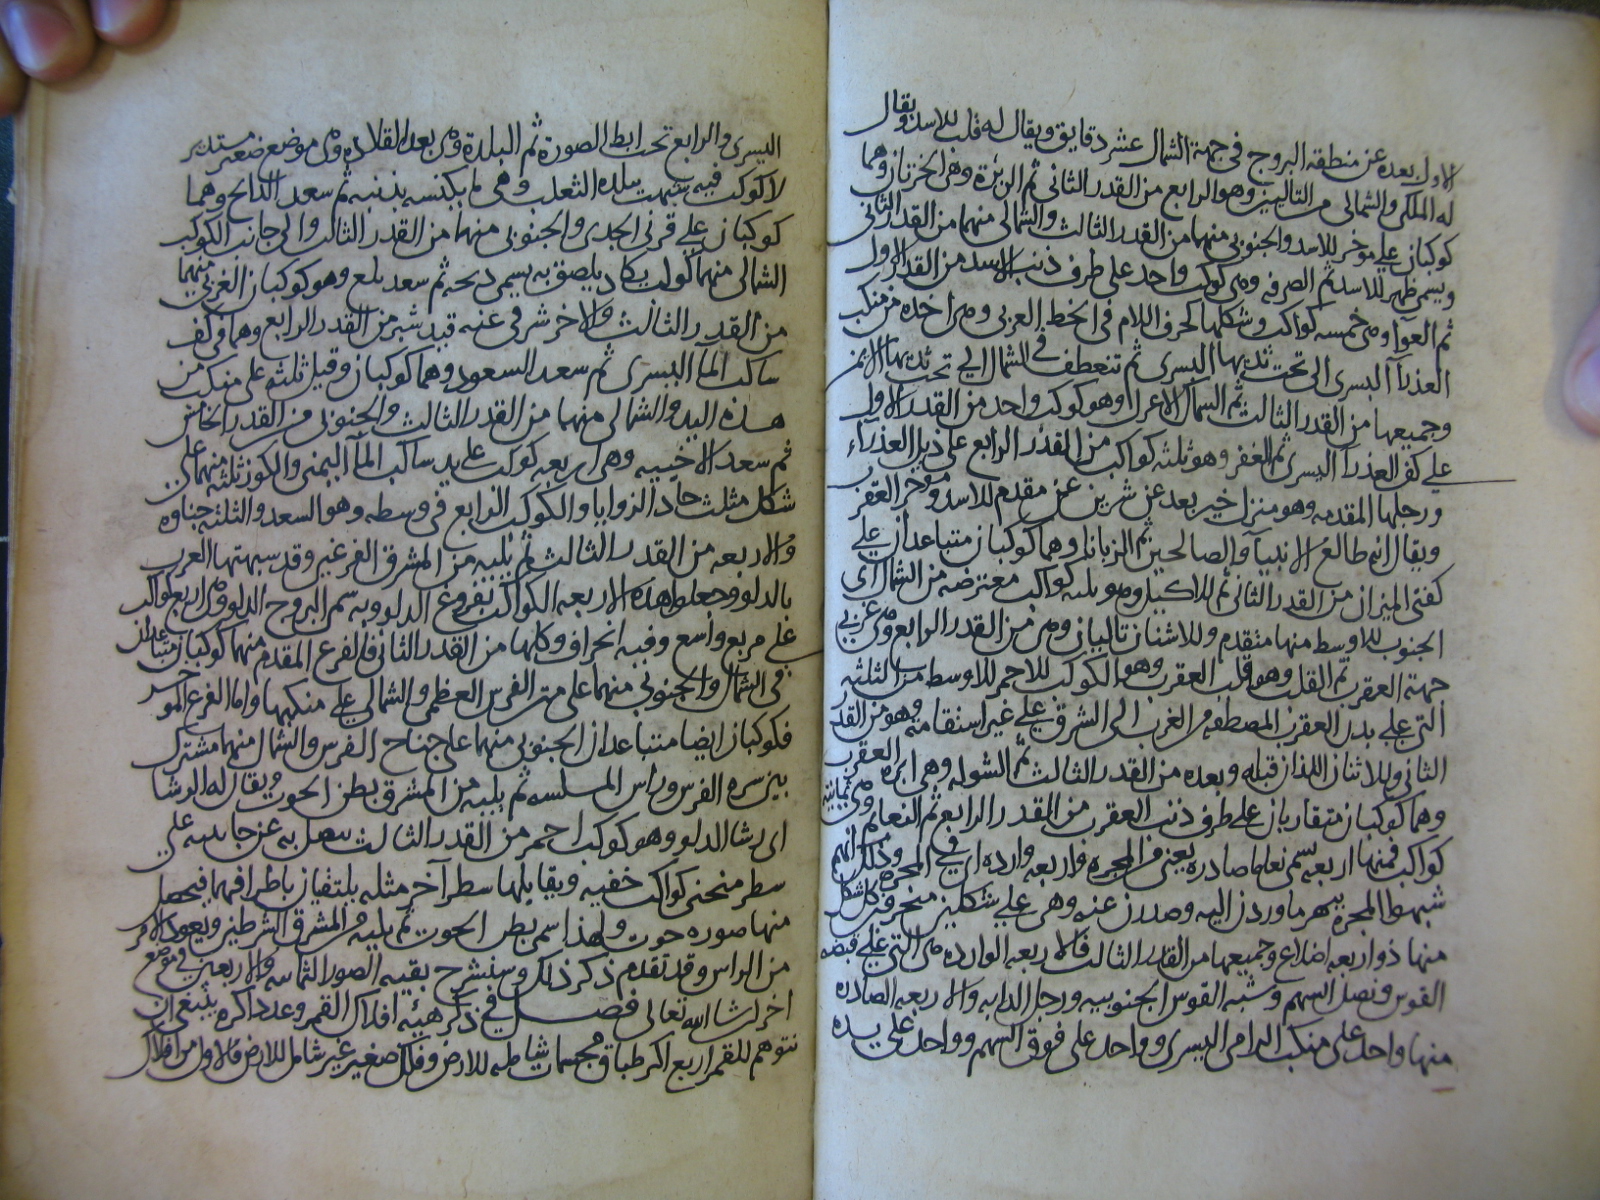 الاول بعده عن منطقه البروج في جهة الشمال عشر دقايق ويقال له قلب الاسد ويقال
له الملكي والشمالى من التاليين وهو الرابع من القدر الثاني ثم الزبرة وهي الخرتان وهما
كوكبان على موخر الاسد والجنوبي منهما من القدر الثالث والشمالى منهما من القدر الثاني
ويسمى ظهر الاسد ثم الصرفه وهي كوكب واحد على طرف ذنب الاسد من القدر الاول
ثم العوا وهي خمسه كواكب وشكلها كحرف اللام في الخط العربي وهي اخده من منكب
العذرآ اليسرى الى تحت ثديها اليسرى ثم تنعطف في الشمال الي تحت ثديها الايمن
وجميعها من القدر الثالث ثم السماك الاعزل وهو كوكب واحد من القدر الاول
على كف العذرآ اليسرى ثم الغفر وهو ثلثه كواكب من القدر الرابع على ذيل العذراء
ورجلها المقدمه وهو منزل خير بعد عن شرين عن مقدم الاسد وموخر العقرب
ويقال انه طالع الانبيآ والصالحين ثم الزبانا وهما كوكبان متباعدان على
كفتي الميزان من القدر الثاني ثم الاكليل وهو ثلثه كواكب معترضه من الشمال الى
الجنوب الاوسط منها متقدم والاثنان تاليان وهي من القدر الرابع وهي غربي
جهة العقرب ثم القلب وهو قلب العقرب وهو الكوكب الاحمر الاوسط من الثلثه
التى على بدن العقرب المصطفه من الغرب الى الشرق على غير استقامه وهو من القدر
الثاني والاثنان اللذان قبله وبعده من القدر الثالث ثم الشوله وهي ابرة العقرب
وهما كوكبان متقاربان على طرف ذنب العقرب من القدر الرابع ثم النعايم وهي ثمانية
كواكب فمنها اربعه تسمى نعاما صادره يعني من المجره واربعه وارده اى في المجره وذلك انهم
شبهوا المجره بنهر ما وردن اليه وصدرن عنه وهي على شكلين منحرفين كل شكل
منها ذو اربعه اضلاع وجميعها من القدر الثالث فالاربعه الوارده هي التي على قبضه
القوس ونصل السهم وسية القوس الجنوبيه ورجل الدابه والاربعه الصادره
منها واحد على منكب الرامي اليسرى وواحد على فوق السهم وواحد على يده
اليسرى والرابع تحت ابط الصورة ثم البلدة وهي بعد القلاده وهي موضع صغير مستدير
لا كوكب فيه شبهت ببلدة الثعلب وهي ما يكنسه بذنبه ثم سعد الذابح وهما
كوكبان على قرني الجدي والجنوبي منهما من القدر الثالث والى جانب الكوكب
الشمالى منهما كوكب يكاد يلصق به يسمى ذبحه ثم سعد بلع وهو كوكبان الغربي منهما
من القدر الثالث والاخر شرقي عنه قيد شبر من القدر الرابع وهما في كف
ساكب المآ اليسرى ثم سعد السعود وهما كوكبان وقيل ثلثه على منكب من
هذه اليد والشمالى منهما من القدر الثالث والجنوبى من القدر الخامس
ثم سعد الاخبيه وهي اربعه كوكب على يد ساكب المآ اليمنى والكوز ثلثه منها على
شكل مثلث حاد الزوايا والكوكب الرابع في وسطه وهو السعد والثلثه خباوه
والاربعه من القدر الثالث ثم يليه من المشرق الفرغين وقد شبهتها العرب
بالدلو وجعلوا هذه الاربعه الكواكب بفروغ الدلو وبه سمى البروج الدلو وهي اربع كواكب
على مربع واسع وفيه انحراف وكلها من القدر الثاني فالفرغ المقدم منهما كوكبان متباعدان
في الشمال والجنوبي منهما على متن الفرس العظمى والشمالى على منكبها واما الفرغ الموخر
فكوكبان ايضا متباعدان الجنوبي منهما على جناح الفرس والشمال منهما مشترك
بين سره الفرس وراس المسلسله ثم يليه من المشرق بطن الحوت ويقال له الرشا
اى رشا الدلو وهو كوكب احمر من القدر الثالث يتصل به عن جانبيه على
سطر منحني كواكب خفيه ويقابلها سطر آخر مثله يلتقيان باطرافهما فيحصل
منها صوره حوت ولهذا سمي بطن الحوت ثم يليه من المشرق الشرطين ويعود الامر
من الراس وقد تقدم ذكر ذلك وسنشرح بقيه الصور الثمانيه والاربعين في موضع
اخر ان شا الله تعالى فصل في ذكر هيئه افلاك القمر وعدد اكره ينبغي ان
نتوهم للقمر اربع اكر طباق مجسمات شامله للارض وفلك صغير غير شامل للارض فالاول من افلاك